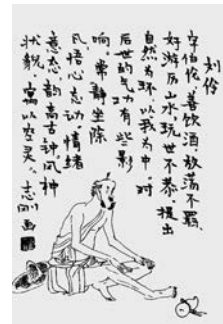 刘伶
字伯伦、善饮酒、放荡不羁、
好游历山水,玩世不恭、提出
自然为环、以我为中、对
后世的气功有些影
响、常静坐除
风悟心忘动、情绪
意态、韵高古神风神
状貌、寓以空灵。志刚画